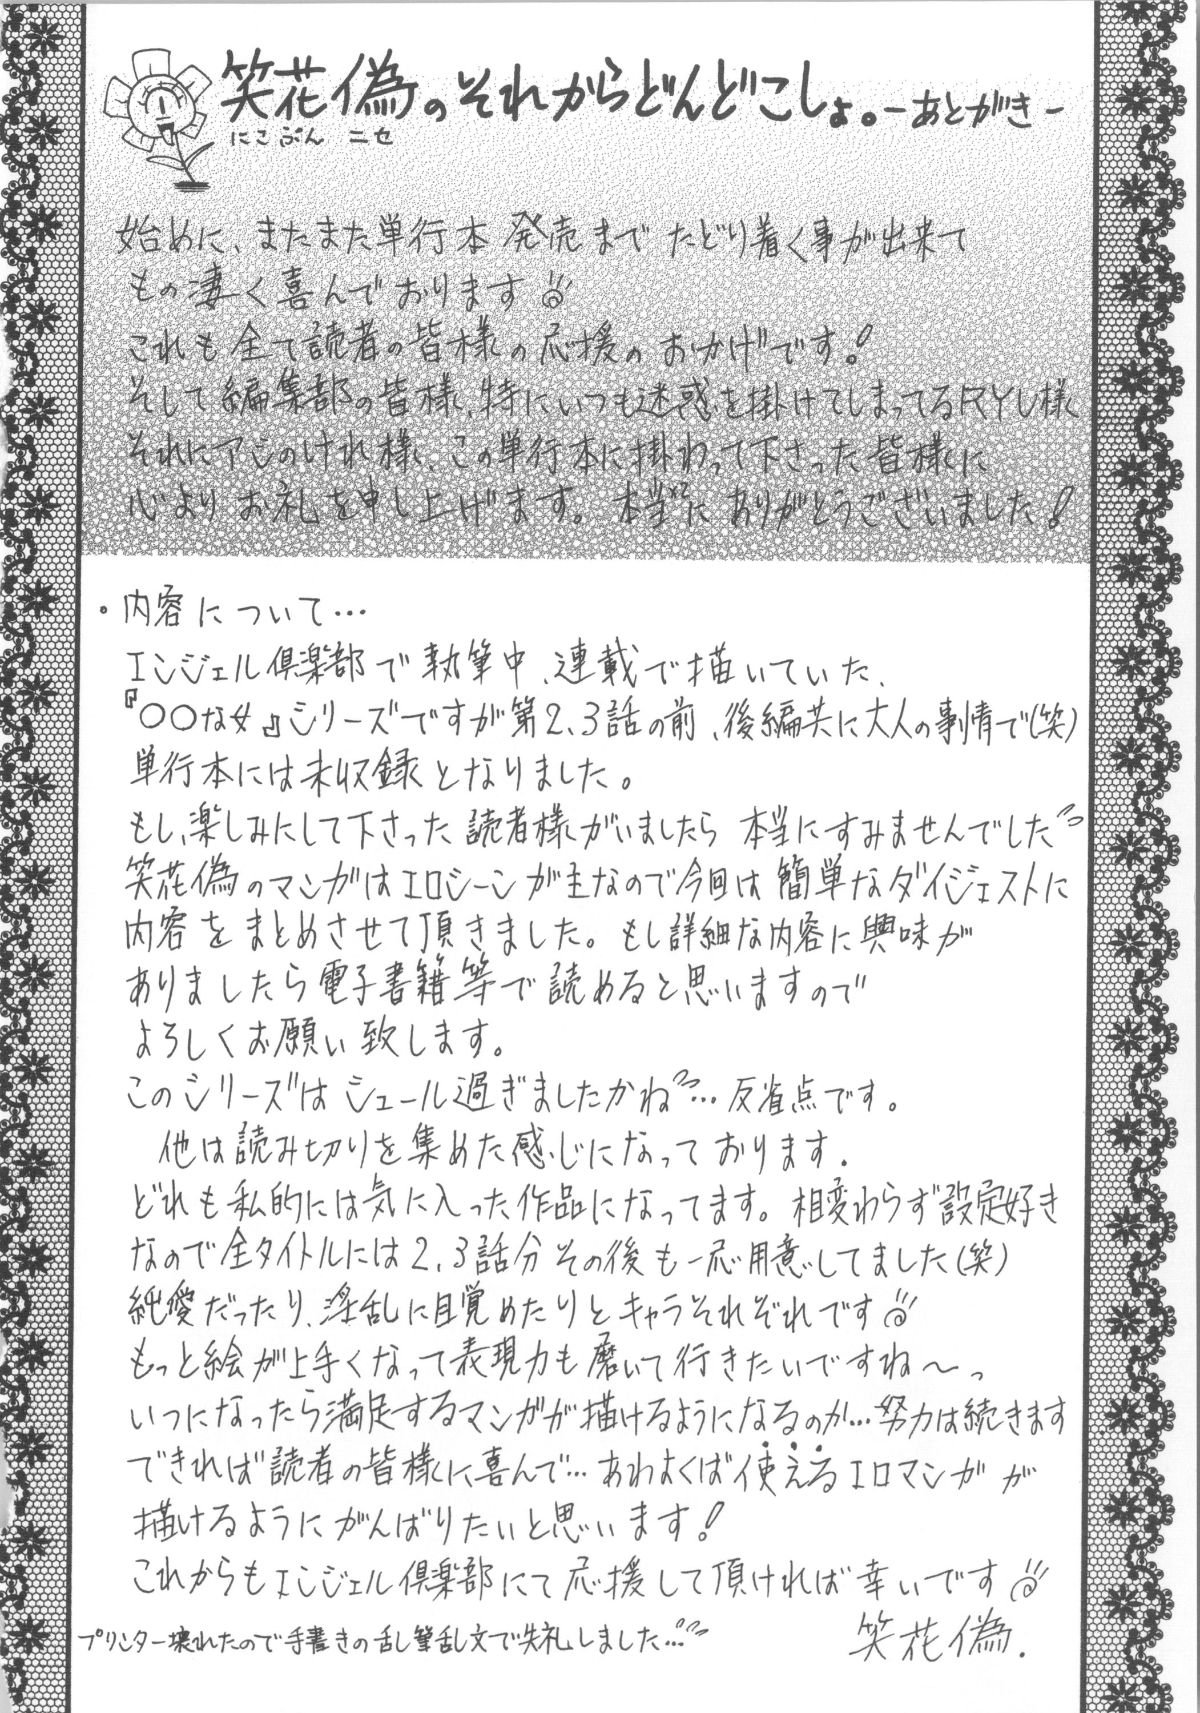 笑花偽のそれからどんどこしょ。-あとがき-
にこぷん ニセ
始めに、またまた単行本発売までたどり着く事が出来て
もの凄く喜んでおります
これも全て読者の皆様の応援のおかげです!
そして編集部の皆様、特にいつも迷惑を掛けてしまってるRYU様
それにアシのけれ様、この単行本に掛わって下さった皆様に
心よりお礼を申し上げます。本当にありがとうございました!
・内容について…
エンジェル倶楽部で執筆中、連載で描いていた、
『〇〇な女』シリーズですが第2、3話の前、後編共に大人の事情で(笑)
単行本には未収録となりました。
もし、楽しみにして下さった読者様がいましたら本当にすみませんでした
笑花偽のマンガはエロシーンが主なので今回は簡単なダイジェストに
内容をまとめさせて頂きました。もし詳細な内容に興味が
ありましたら電子書籍等で読めると思いますので
よろしくお願い致します。
このシリーズはシュール過ぎましたかね…反省点です。
他は読み切りを集めた感じになっております.
どれも私的には気に入った作品になってます。相変わらず設定好き
なので全タイトルには2、3話分その後も一応用意してました(笑)
純愛だったり、淫乱に目覚めたりとキャラそれぞれです
もっと絵が上手くなって表現力も磨いて行きたいですね〜っ
いつになったら満足するマンガが描けるようになるのか…努力は続きます
できれば読者の皆様に、喜んで…あわよくば使えるエロマンガが
描けるようにがんばりたいと思います!
これからもエンジェル倶楽部にて応援して頂ければ幸いです
プリンター壊れたので手書きの乱筆乱文で失礼しました…
笑花偽.